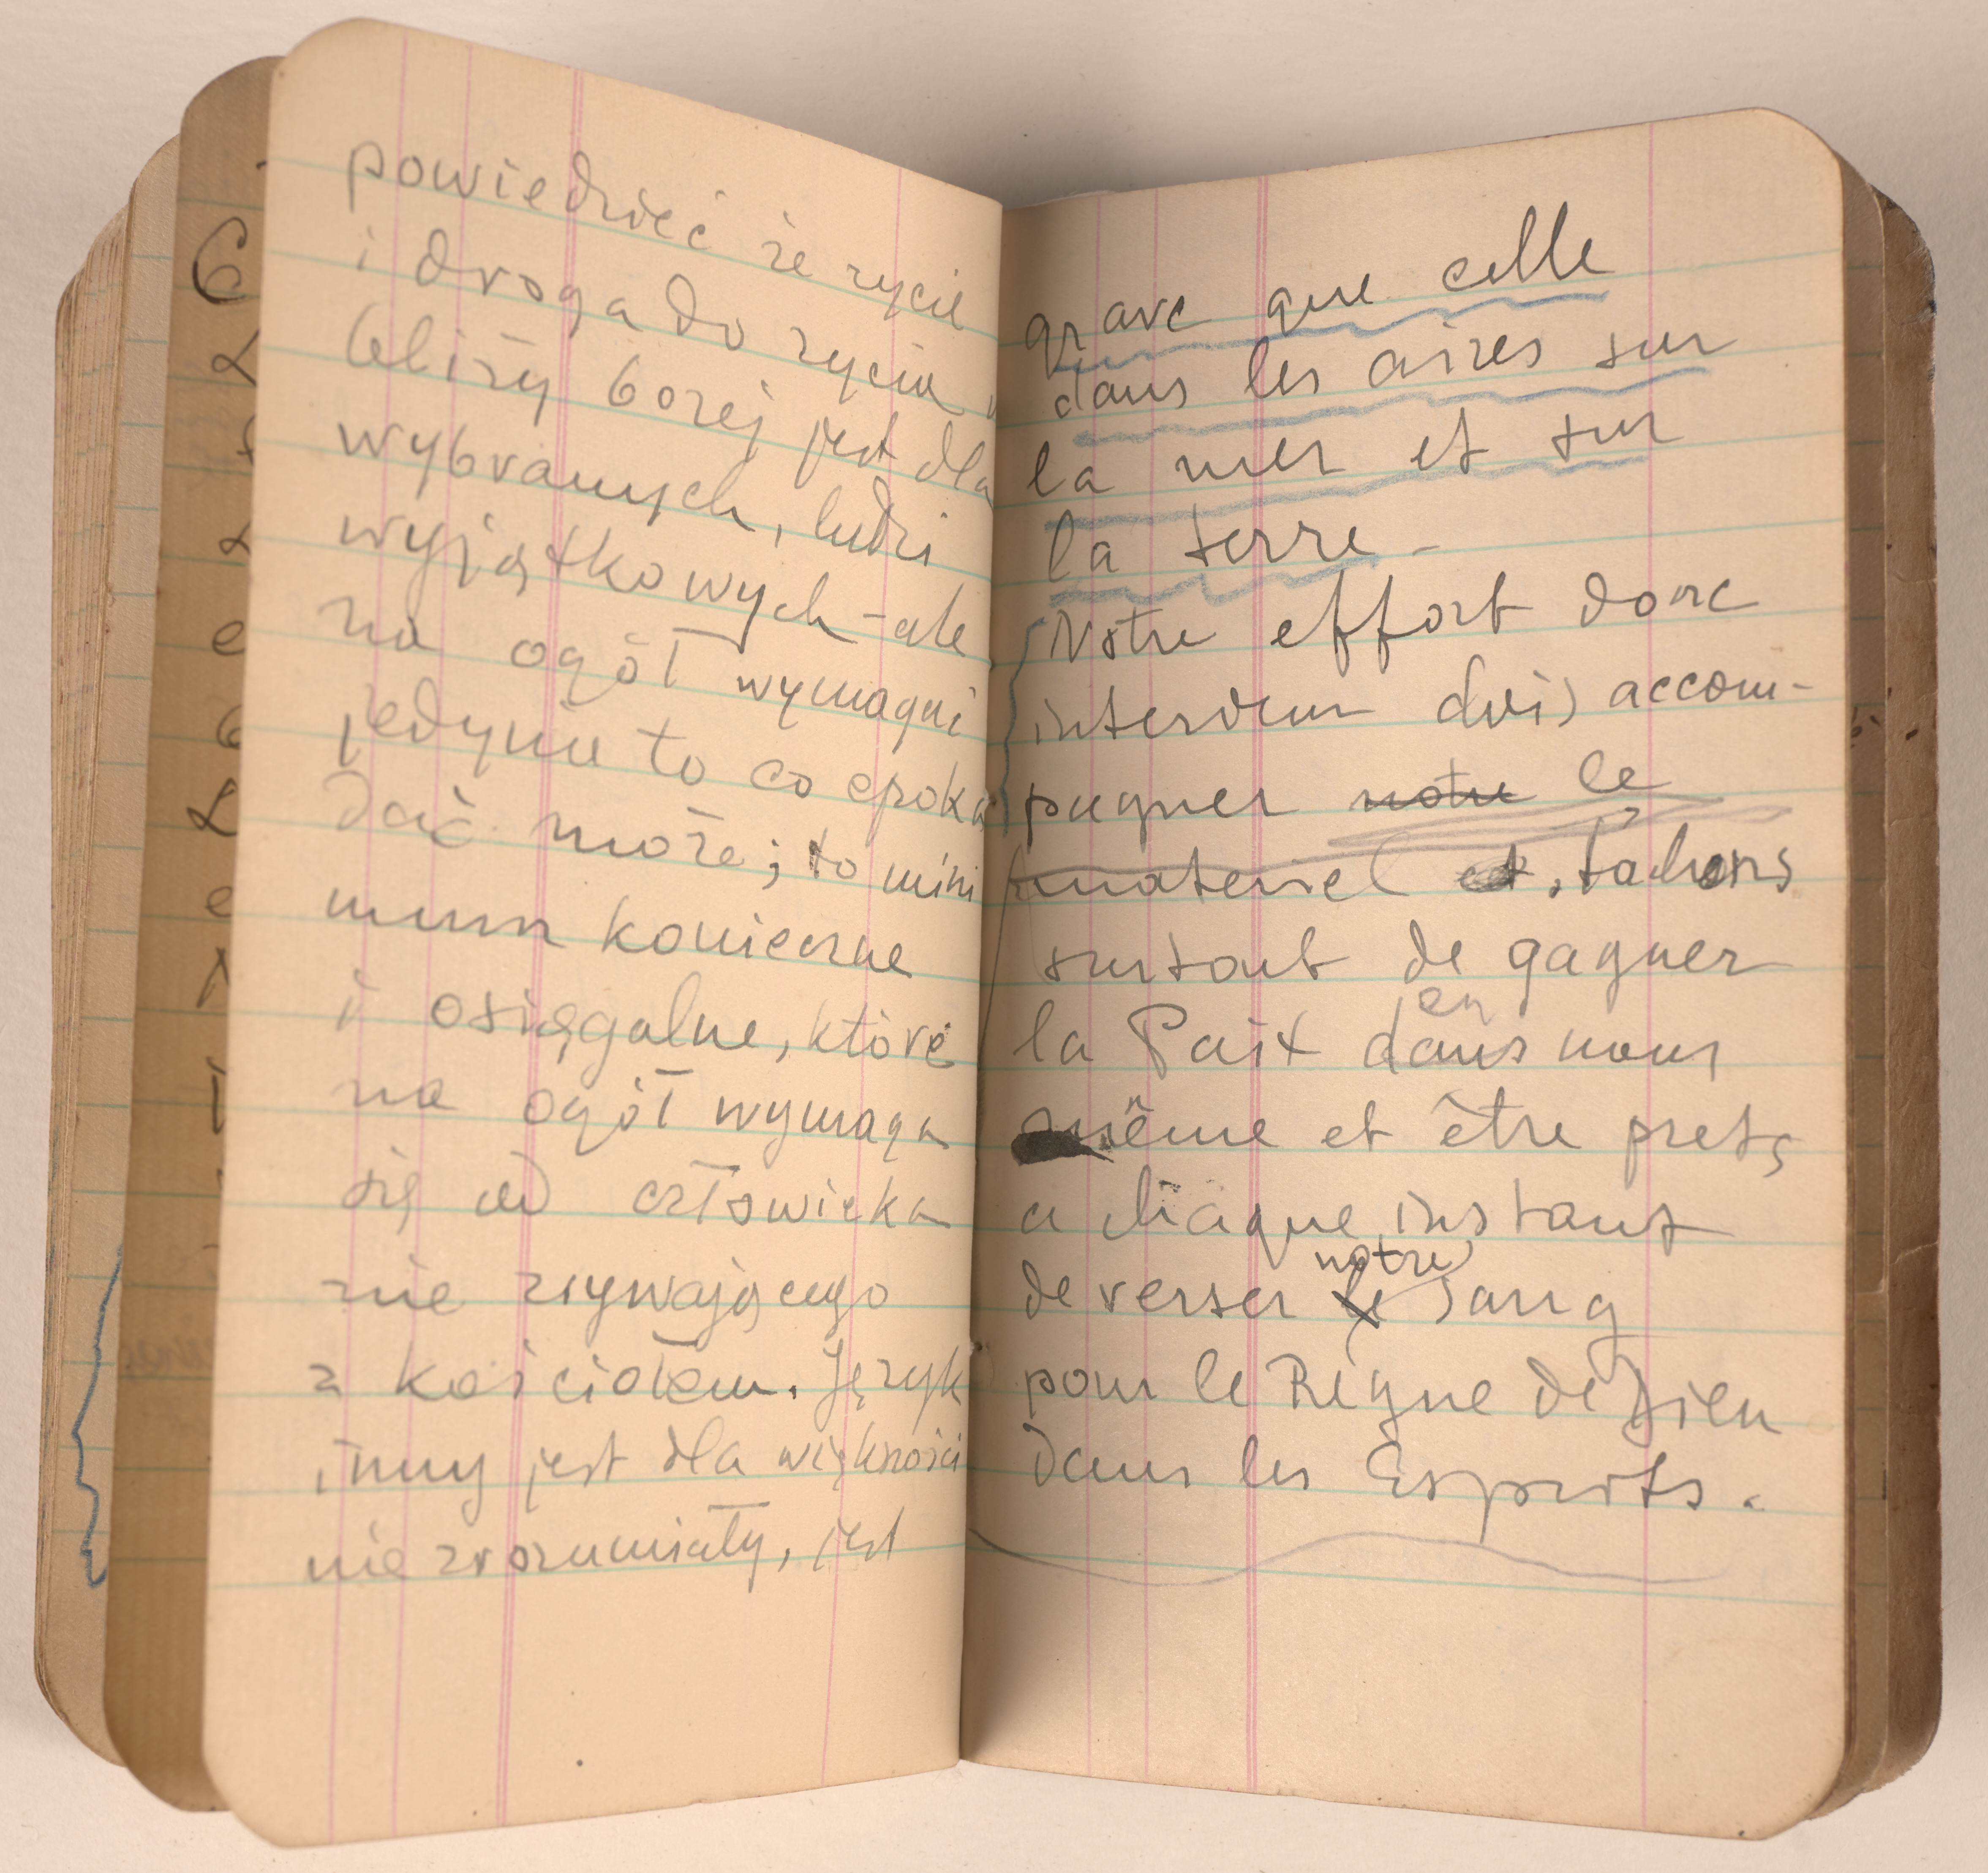 powiedzieć że życie
i droga do życia w
bliży bożej jest dla
wybranych, ludzi
wyjątkowych - ale
na ogół wymagać
jedynie to co epoka
dać może; to mini
mum konieczne
i osiągalne, które
na ogół wymaga
się od człowieka
nie zrywającego
z kościołem. Język
inny jest dla większości
nie zrozumiały, jest
grave que celle
dans les aires sur
la mer et sur
la terre -
Notre effort donc
interieur doit accom-
pagner notre le
materiel et, tachons
surtout de gagner
la Paix dans en nous
même et être prets
a chaque instant
de verser le notre sang
pour le Règne de Dieu
dans les Esprits.